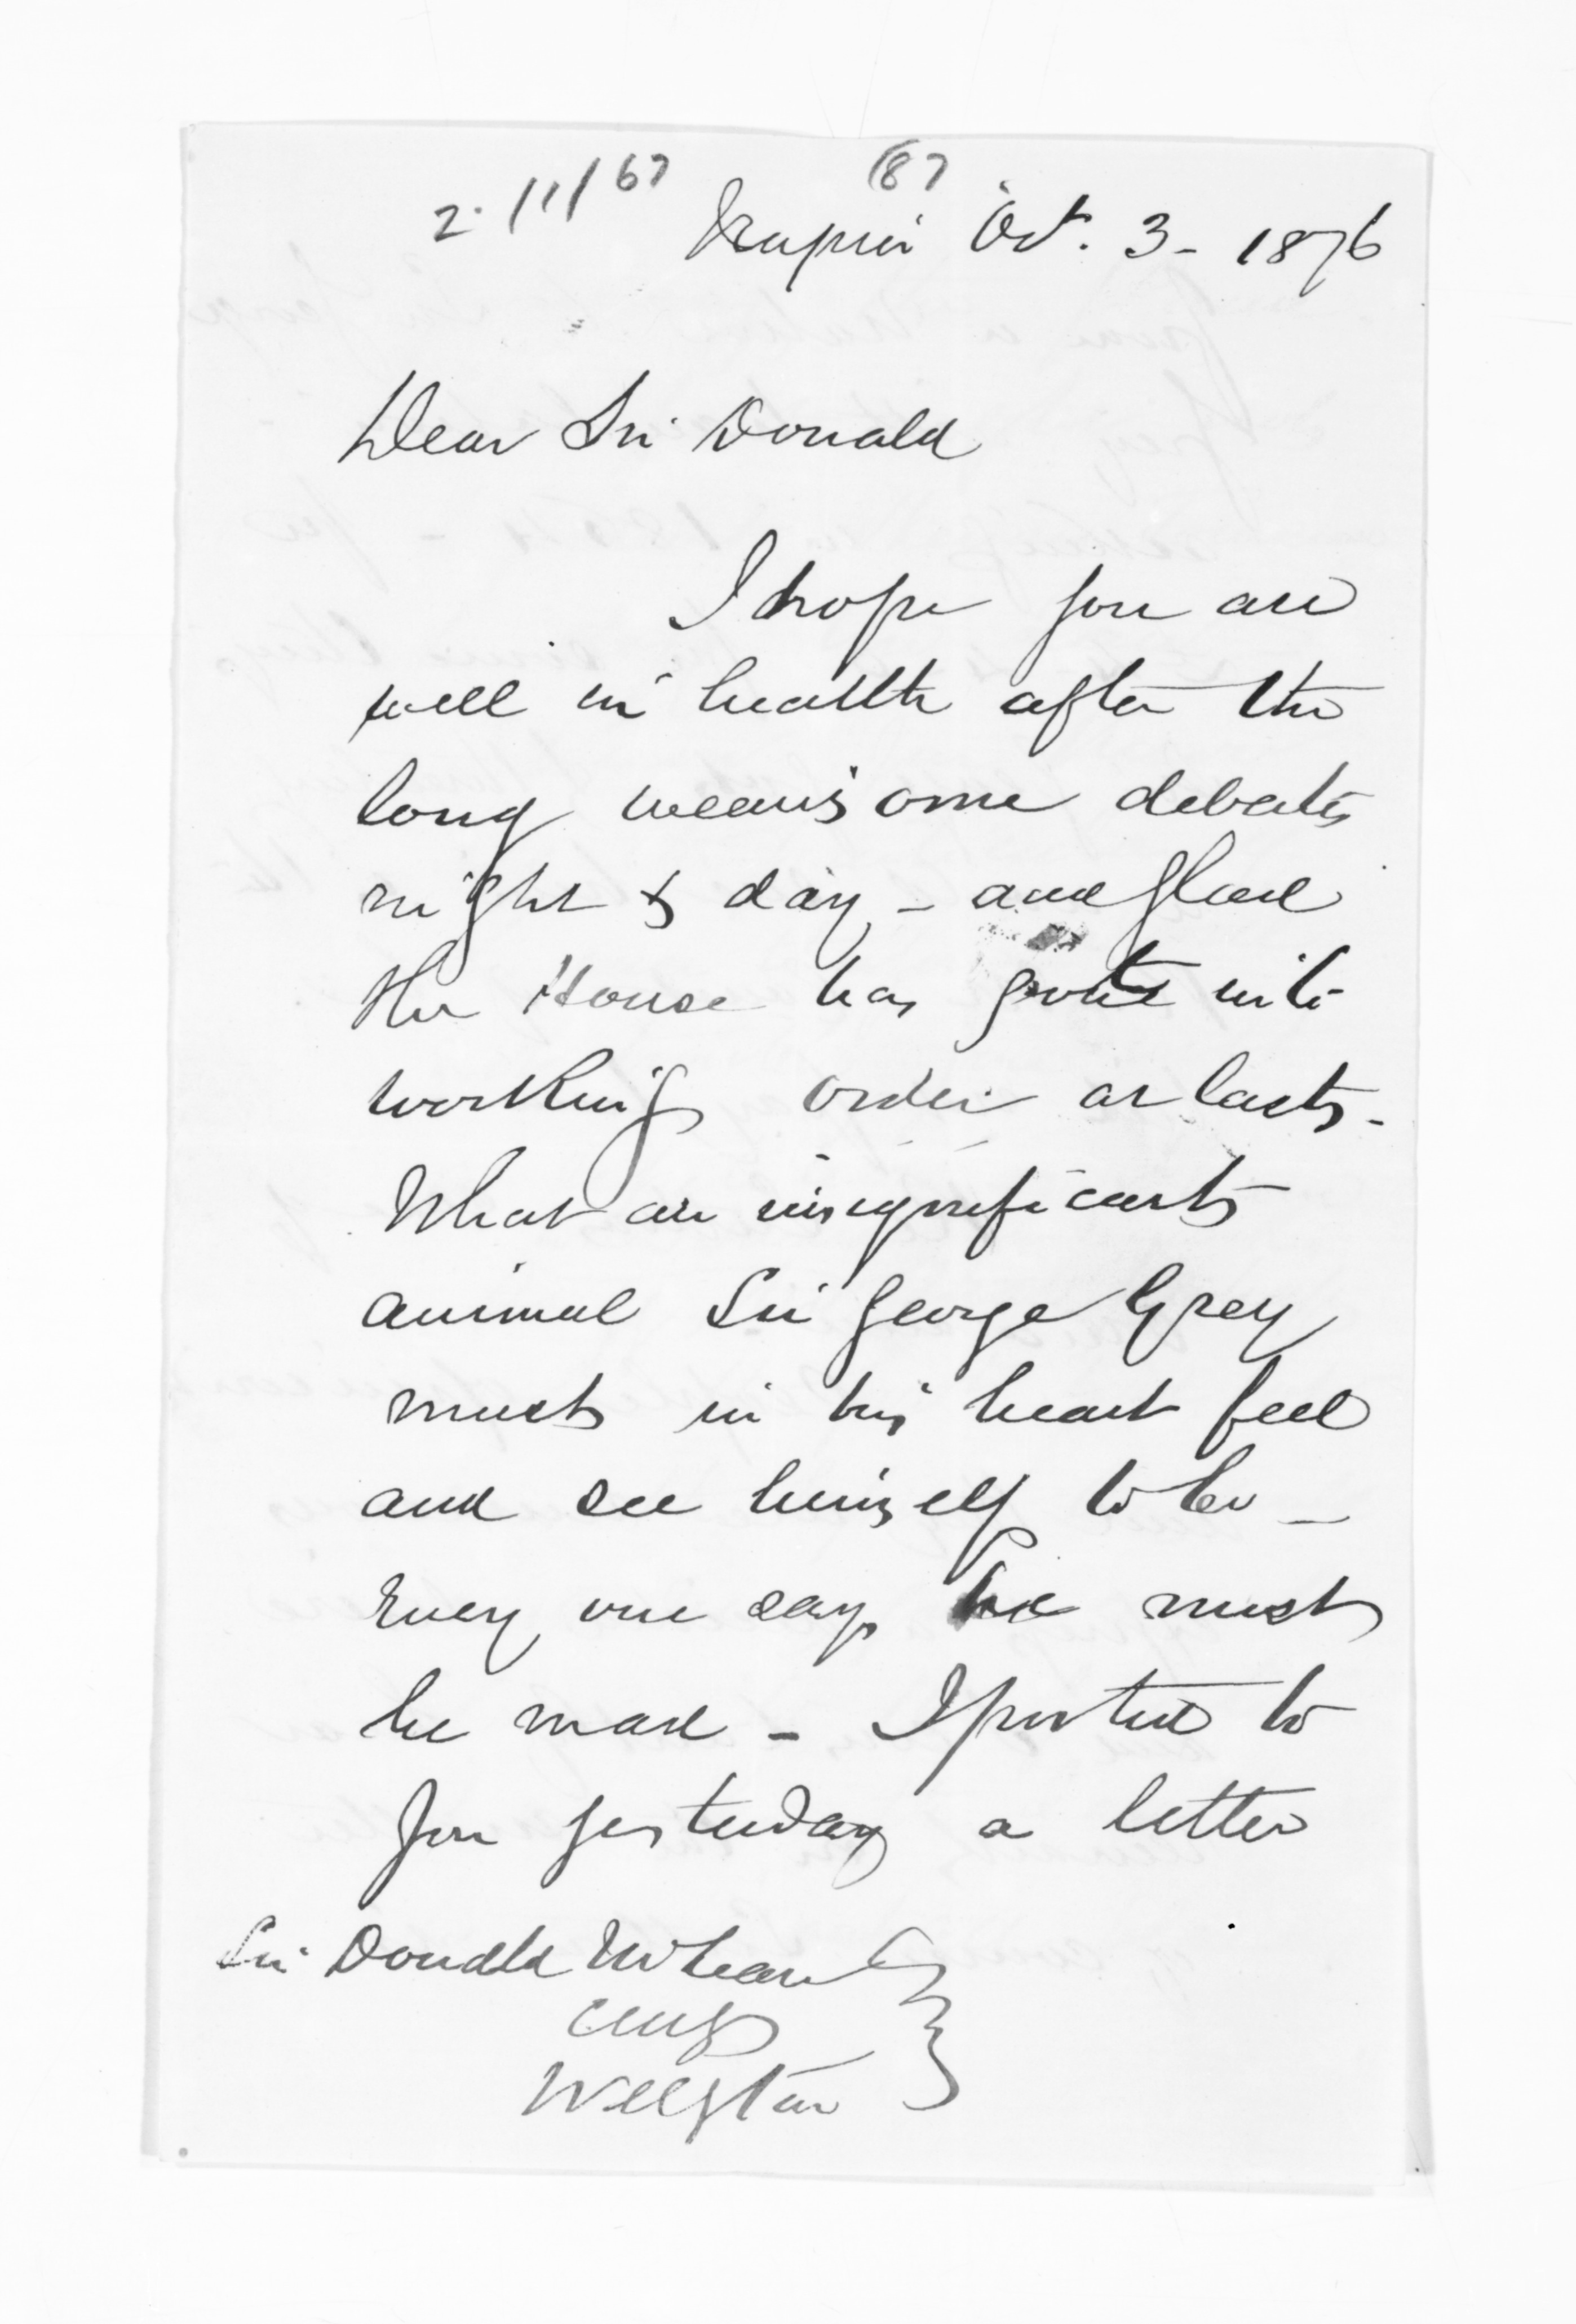 2. /11/ 67 (87
Napier Oct. 3 - 1876
Dear Sir Donald
I hope you are
well in health after the
long wearisome debates
night & day - and glad
the House has gone into
working order at last -
What an insignificant
animal Sir George Grey
must in his heart feel
and see himself to be -
Every one says he must
be mad - I posted to
you yesterday a letter
Sir Donald McLean
Wellgtn